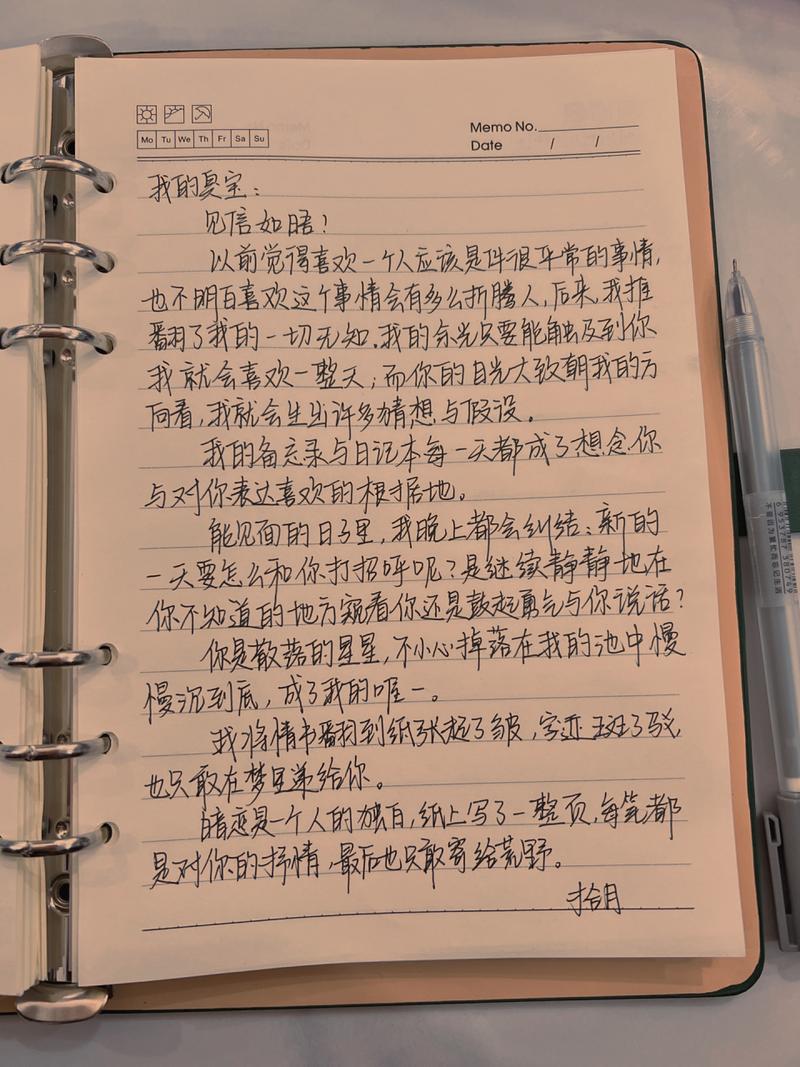 Mo Tu We Th Fr Sa Su
Memo No.
Date / /
我的臭宝：
见信如晤！
以前觉得喜欢一个人应该是件很平常的事情，
也不明白喜欢这个事情会有多么折腾人，后来，我推
翻了我的一切无知．我的余光只要能触及到你
我就会喜欢一整天，而你的目光大致朝我的方
向看，我就会生出许多猜想与假设。
我的备忘录与日记本每一天都成了想念你
与对你表达喜欢的根据地。
能见面的日子里，我晚上都会纠结：新的
一天要怎么和你打招呼呢？是继续静静地在
你不知道的地方窥看你还是鼓起勇气与你说话？
你是散落的星星，不小心掉落在我的池中慢
慢沉到底，成了我的唯一。
我将情书翻到纸张起了皱，字迹斑了驳，
也只敢在梦里递给你。
暗恋是一个人的独白，纸上写了一整页，每笔都
是对你的抒情，最后也只敢寄给荒野。
拾月